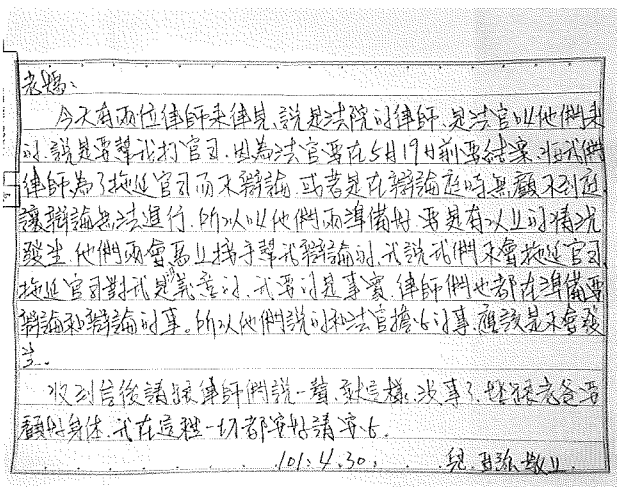 老媽:
今天有兩位律師來律見、說是法院的律師、是法官叫他們來
的、說是要幫我打官司、因為法官要在5月19日前要結案、怕我們
律師為了拖延官司而不辯論、或者是在辯論庭時無顧不到庭
讓辯論無法進行、所以叫他們兩準備好、要是有以上的情況
發生、他們兩會馬上接手幫我辯論的、我說我們不會拖延官司、
拖延官司對我是無意義的、我要的是事實、律師們也都在準備要
辯論和辯論的事。所以他們說的和法官擔心的事、應該是不會發
生。
收到信後請跟律師們說一聲、就這樣、沒事了、媽跟老爸要
顧好身体、我在這裡一切都安好請安心。
101.4.30. 兒 敬上